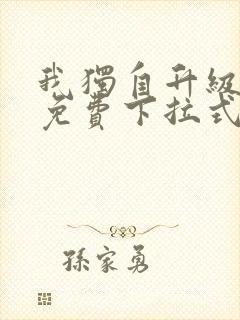 我獨自升級
免費下拉式
孫家勇